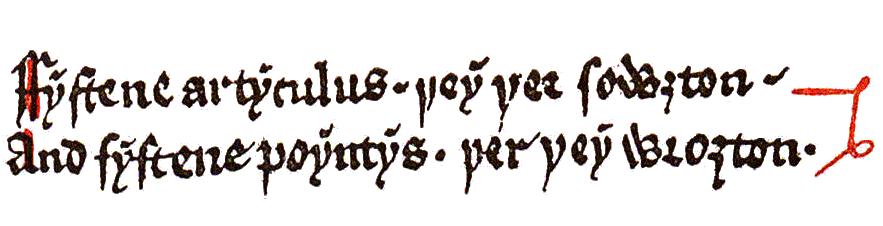 Fyftene artyculus · þey þer sowȝton ·
And fyftene poyntys · þer þey wroȝton ·